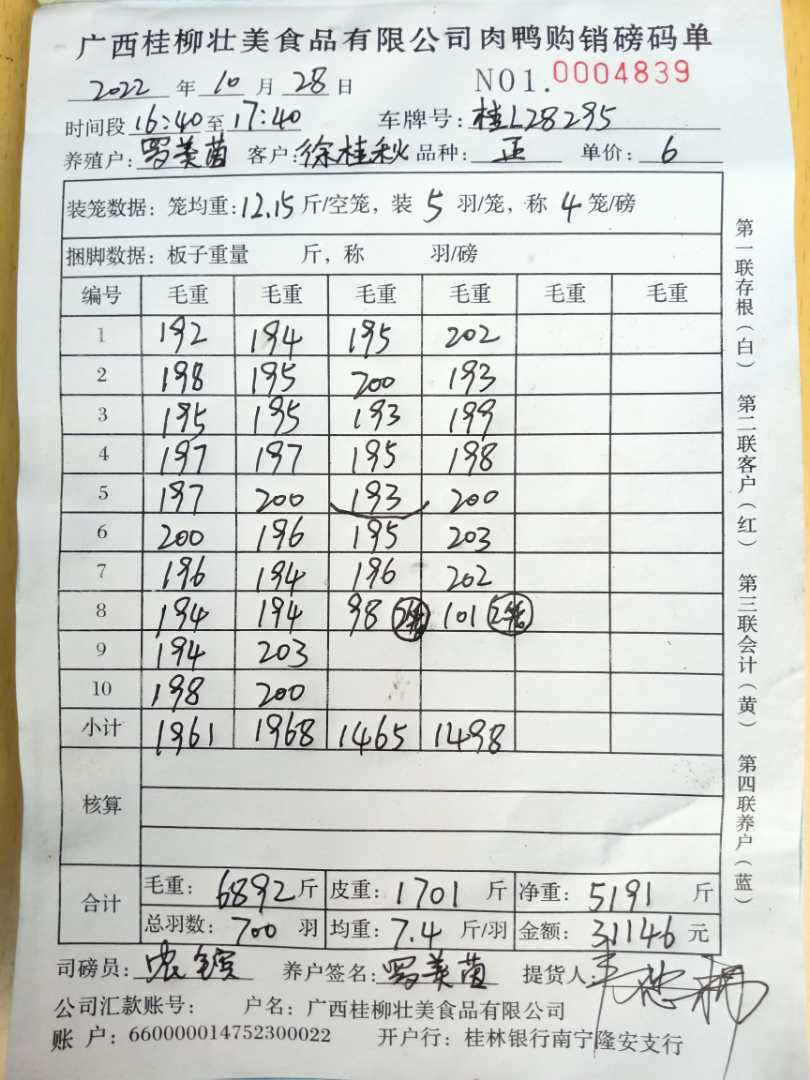 广西桂柳壮美食品有限公司肉鸭购销磅码单
2022 年 10 月 28 日 NO1.0004839
时间段 16:40 至 17:40 车牌号: 桂L28295
养殖户: 罗美茵 客户: 徐桂秋 品种: 正 单价: 6
装笼数据: 笼均重: 12.15 斤/空笼, 装 5 羽/笼, 称 4 笼/磅
捆脚数据: 板子重量 斤, 称 羽/磅
编号 毛重 毛重 毛重 毛重 毛重 毛重
1 192 194 195 202
2 198 195 200 193
3 195 195 193 199
4 197 197 195 198
5 197 200 193 200
6 200 196 195 203
7 196 194 196 202
8 194 194 98 101
9 194 203
10 198 200
小计 1961 1968 1465 1498
核算
合计 毛重: 6892 斤 皮重: 1701 斤 净重: 5191 斤
总羽数: 700 羽 均重: 7.4 斤/羽 金额: 31146 元
司磅员: 养户签名: 罗美茵 提货人:
公司汇款账号: 户名: 广西桂柳壮美食品有限公司
账 户: 660000014752300022 开户行: 桂林银行南宁隆安支行
第一联存根(白) 第二联客户(红) 第三联会计(黄) 第四联养户(蓝)